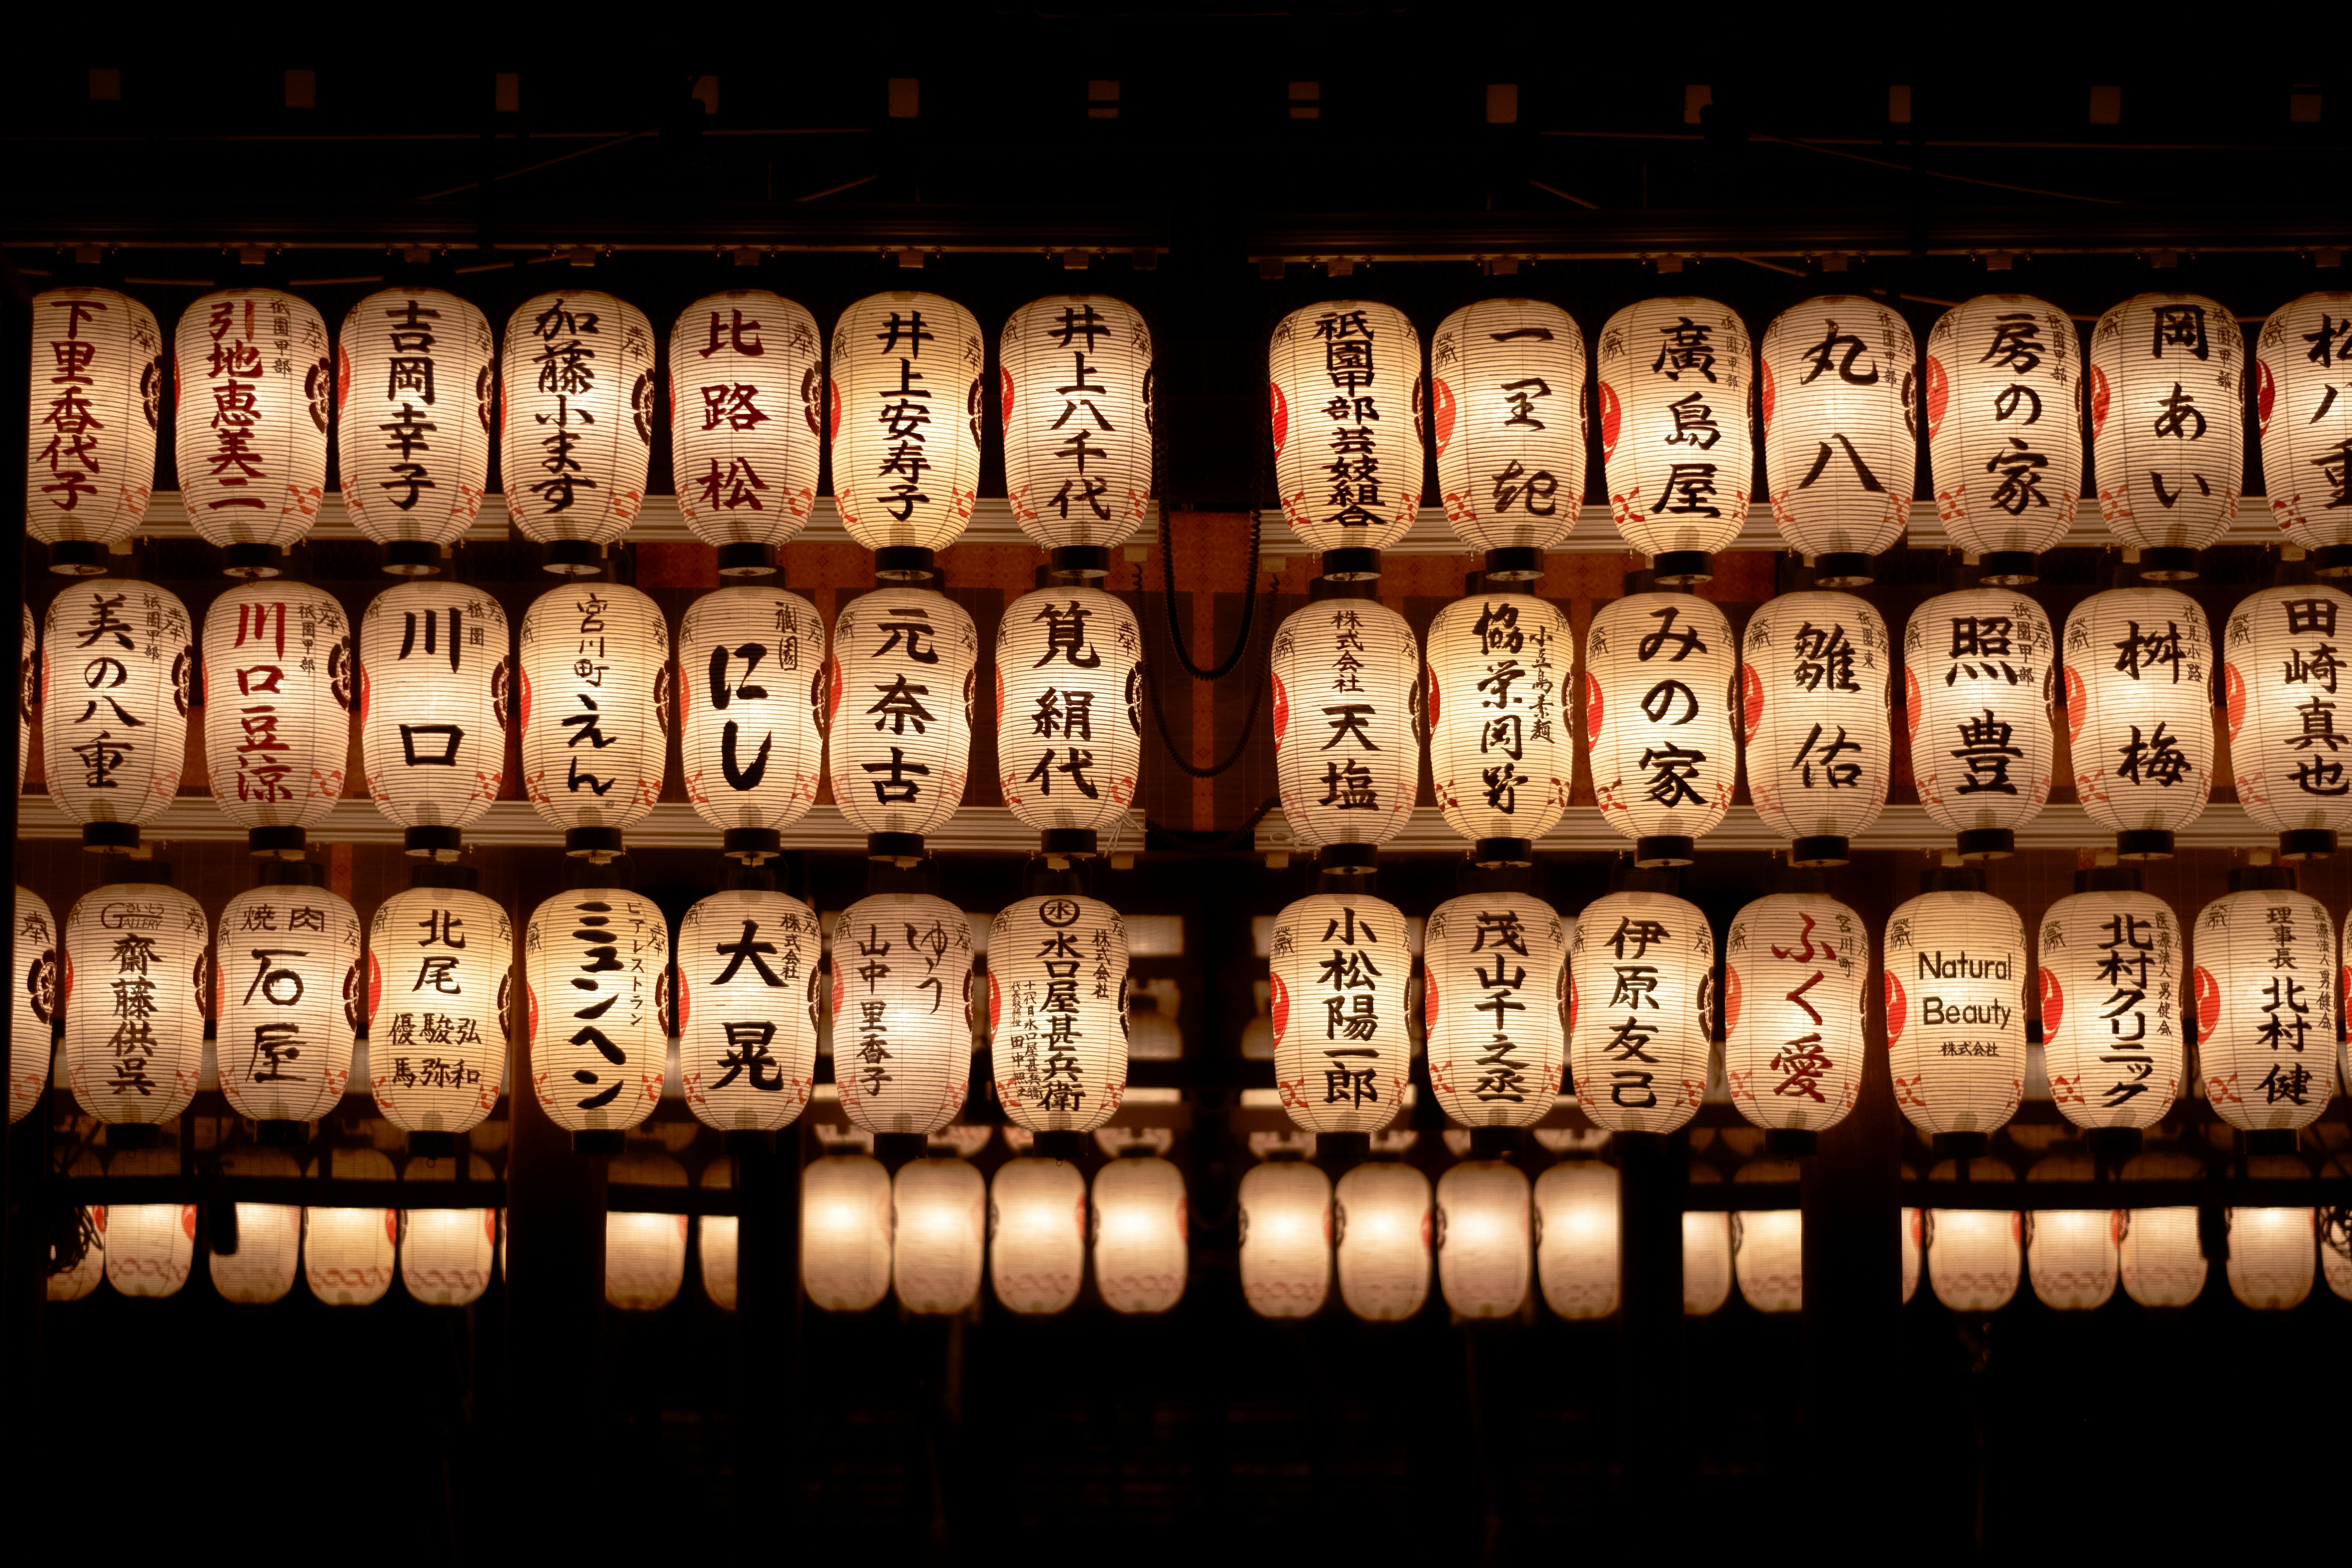 下里香代子
祇園甲部
引地恵美二
吉岡幸子
加藤小ます
比路松
井上安寿子
井上八千代
祇園甲部芸妓組合
一里起
祇園甲部
廣島屋
祇園甲部
丸八
祇園甲部
房の家
祇園甲部
岡あい
祇園甲部
美の八重
祇園甲部
川口豆涼
祇園
川口
宮川町
えん
祇園
にし
元奈古
筧絹代
株式会社
天塩
小豆島素麺
協栄岡野
みの家
祇園東
雛佑
祇園甲部
照豊
花見小路
桝梅
田崎真也
GALLERY
齋藤供呉
焼肉
石屋
北尾
弘和
駿弥
優馬
ビアレストラン
ミュンヘン
株式会社
大晃
ゆう
山中里香子
水
株式会社
水口屋甚兵衛
小松陽一郎
茂山千之丞
伊原友己
宮川町
ふく愛
Natural
Beauty
株式会社
医療法人男健会
北村クリニック
医療法人男健会
理事長
北村健